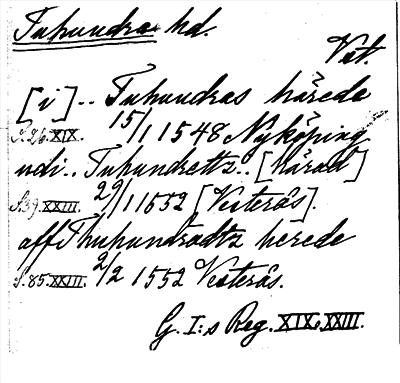 Tuhundra hd.
Vst.
[i] .. Tuhundras härede
S.26.XIX. 15/1 1548 Nyköping
udi .. Tuhundrettz .. [härad]
S.39.XXIII. 29/1 1552 [Vesterås].
aff Thuhundradtz herede
S.85.XXIII. 2/2 1552 Vesterås.
G. I:s Reg. XIX, XXIII.